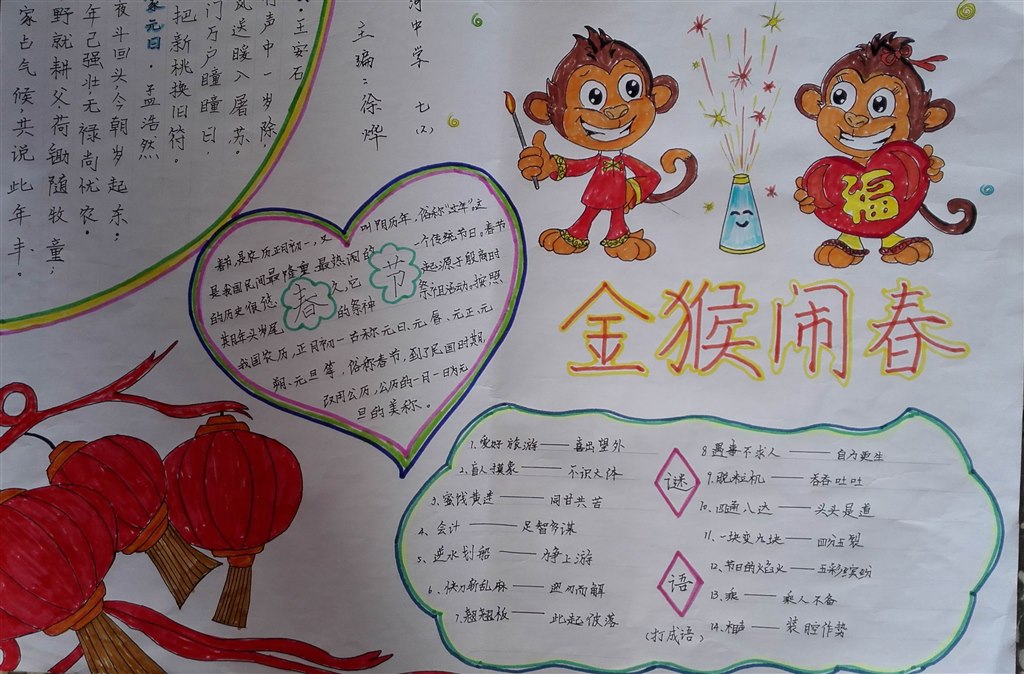 王安石
声中一岁除，
风送暖入屠苏。
门万户曈曈日，
把新桃换旧符。
家元日·孟浩然
夜斗回头，今朝岁起东；
年已强壮，无禄尚忧农。
野就耕父，荷锄随牧童；
家占气候，共说此年丰。
河中学 七(2)
主编：徐烨
春节，是农历正月初一，又叫阴历年，俗称“过年”。这
是我国民间最隆重、最热闹的一个传统节日。春节
的历史很悠久，它起源于殷商时
期年头岁尾的祭神祭祖活动。按照
我国农历，正月初一古称元日、元辰、元正、元
朔、元旦等，俗称春节，到了民国时期，
改用公历，公历的一月一日为元
旦的美称。
春节
福
金猴闹春
谜语
(打成语)
1.爱好旅游——喜出望外
2.盲人摸象——不识大体
3.蜜饯黄连——同甘共苦
4.会计——足智多谋
5.逆水划船——力争上游
6.快刀斩乱麻——迎刃而解
7.翘翘板——此起彼落
8.遇事不求人——自力更生
9.脱粒机——吞吞吐吐
10.四通八达——头头是道
11.一块变九块——四分五裂
12.节日的焰火——五彩缤纷
13.乘——乘人不备
14.相声——装腔作势